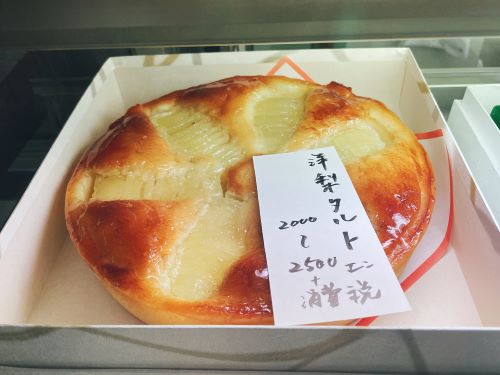 洋梨タルト
2000
〜
2500エン
+
消費税